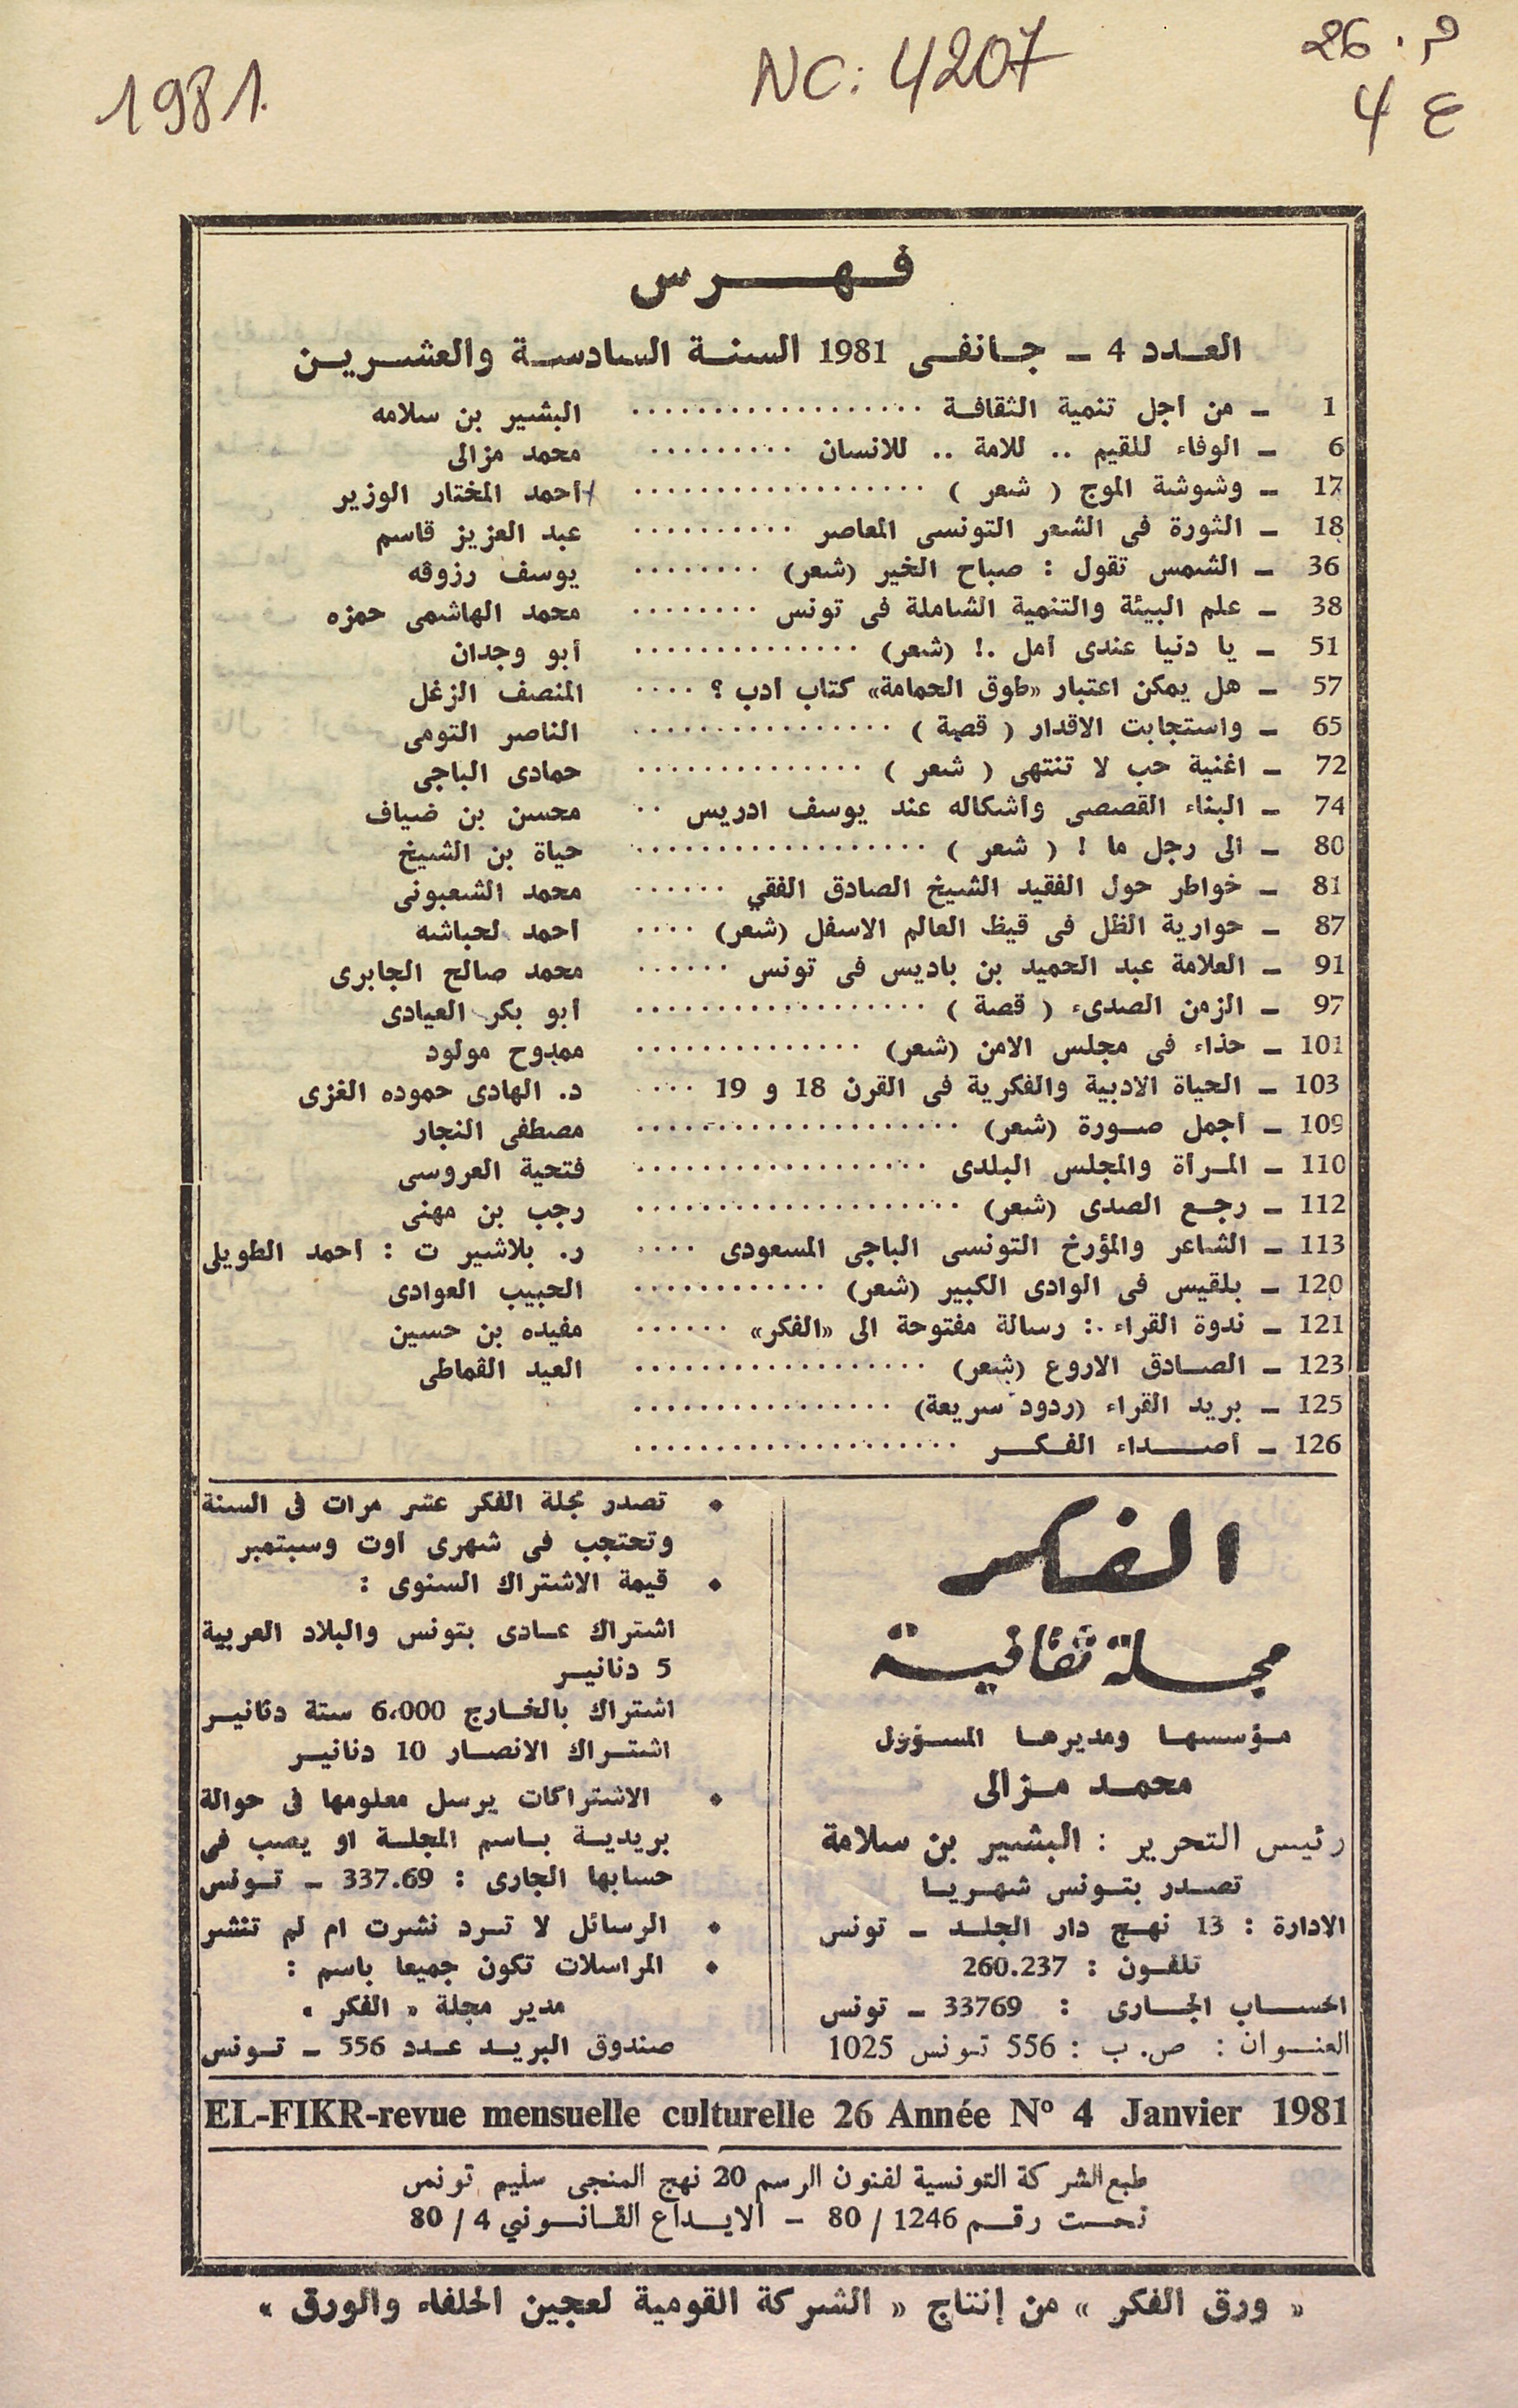 1981
NC: 4207
م. 26
ع 4
فهرس
العدد 4 ـ جانفى 1981 السنة السادسة والعشرين
1 ـ من أجل تنمية الثقافة .................. البشير بن سلامه
6 ـ الوفاء للقيم .. للامة .. للانسان ......... محمد مزالى
17 ـ وشوشة الموج ( شعر ) .................. أحمد المختار الوزير
18 ـ الثورة فى الشعر التونسى المعاصر .......... عبد العزيز قاسم
36 ـ الشمس تقول : صباح الخير (شعر) ........ يوسف رزوقه
38 ـ علم البيئة والتنمية الشاملة فى تونس ........ محمد الهاشمى حمزه
51 ـ يا دنيا عندى أمل .! (شعر) .............. أبو وجدان
57 ـ هل يمكن اعتبار «طوق الحمامة» كتاب ادب ؟ .... المنصف الزغل
65 ـ واستجابت الاقدار ( قصة ) ................ الناصر التومى
72 ـ اغنية حب لا تنتهى ( شعر ) .............. حمادى الباجى
74 ـ البناء القصصى وأشكاله عند يوسف ادريس .. محسن بن ضياف
80 ـ الى رجل ما ! ( شعر ) .................. حياة بن الشيخ
81 ـ خواطر حول الفقيد الشيخ الصادق الفقي ...... محمد الشعبونى
87 ـ حوارية الظل فى قيظ العالم الاسفل (شعر) .... احمد لحباشه
91 ـ العلامة عبد الحميد بن باديس فى تونس ...... محمد صالح الجابرى
97 ـ الزمن الصدىء ( قصة ) .................. أبو بكر العيادى
101 ـ حذاء فى مجلس الامن (شعر) .............. ممدوح مولود
103 ـ الحياة الادبية والفكرية فى القرن 18 و 19 .... د. الهادى حموده الغزى
109 ـ أجمل صورة (شعر) .................... مصطفى النجار
110 ـ المرأة والمجلس البلدى .................. فتحية العروسى
112 ـ رجع الصدى (شعر) .................... رجب بن مهنى
113 ـ الشاعر والمؤرخ التونسى الباجى المسعودى .... ر. بلاشير ت : أحمد الطويلى
120 ـ بلقيس فى الوادى الكبير (شعر) ............ الحبيب العوادى
121 ـ ندوة القراء : رسالة مفتوحة الى «الفكر» ...... مفيده بن حسين
123 ـ الصادق الاروع (شعر) .................. العيد القماطى
125 ـ بريد القراء (ردود سريعة) ................
126 ـ أصداء الفكر ....................
الفكر
مجلة ثقافية
مؤسسها ومديرها المسؤول
محمد مزالى
رئيس التحرير : البشير بن سلامة
تصدر بتونس شهريا
الادارة : 13 نهج دار الجلد ـ تونس
تلفون : 260.237
الحساب الجارى : 33769 ـ تونس
العنوان : ص. ب : 556 تونس 1025
• تصدر مجلة الفكر عشر مرات فى السنة
وتحتجب فى شهرى أوت وسبتمبر
• قيمة الاشتراك السنوى :
اشتراك عادى بتونس والبلاد العربية
5 دنانير
اشتراك بالخارج 6،000 ستة دنانير
اشتراك الانصار 10 دنانير
• الاشتراكات يرسل معلومها فى حوالة
بريدية باسم المجلة او يصب فى
حسابها الجارى : 337.69 ـ تونس
• الرسائل لا ترد نشرت ام لم تنشر
• المراسلات تكون جميعا باسم :
مدير مجلة « الفكر »
صندوق البريد عدد 556 ـ تونس
EL-FIKR-revue mensuelle culturelle 26 Année N° 4 Janvier 1981
طبع الشركة التونسية لفنون الرسم 20 نهج المنجى سليم تونس
تحت رقم 1246 / 80 - الايداع القانوني 4 / 80
« ورق الفكر » من إنتاج « الشركة القومية لعجين الحلفاء والورق »